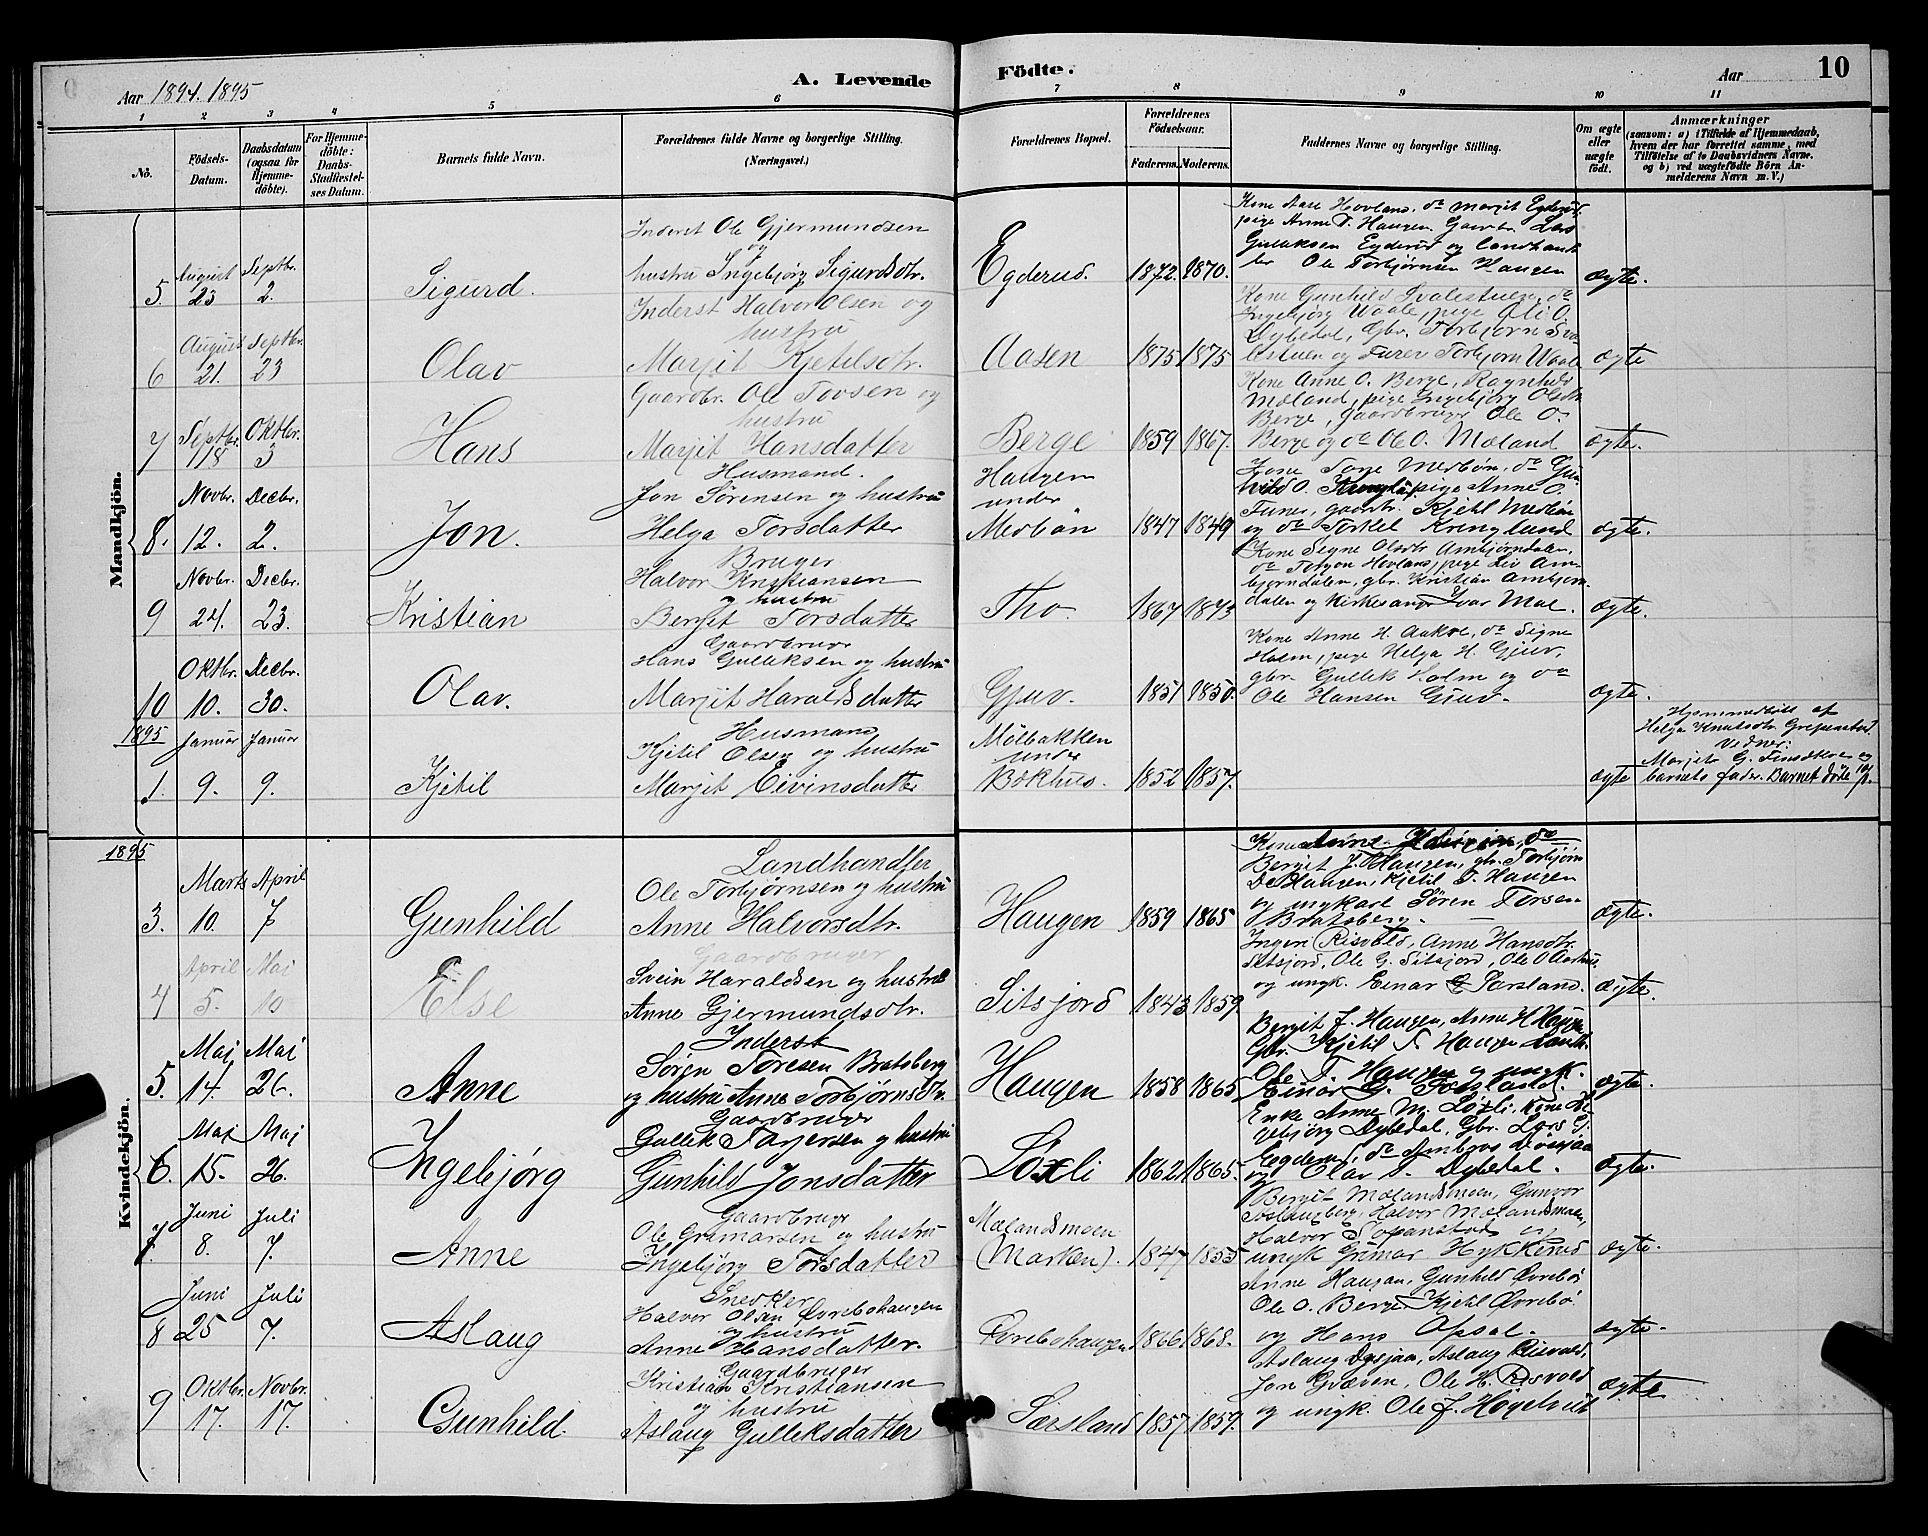 Aar 1894. 1895
A. Levende
Födte.
Aar
10
1 2 3 4 5 6 7 8 9 10 11
No.
Födsels-
Datum.
Daabsdatum
(ogsaa for
Hjemme-
döbte).
For Hjemme-
döbte:
Daabs-
Stadfæstel-
ses Datum.
Barnets fulde Navn.
Forældrenes fulde Navne og borgerlige Stilling.
(Næringsvei.)
Forældrenes Bopæl.
Forældrenes
Födselsaar.
Faderens.
Moderens.
Faddernes Navne og borgerlige Stilling.
Om ægte
eller
uægte
født.
Anmærkninger
(saasom: a) i Tilfælde af Hjemmedaab,
hvem der har forrettet samme, med
Tilföielse af to Daabsvidners Navne.
og b) ved uægtefödte Börn An-
melderens Navn m. V.)
Mandkjön.
5.
August
23
Septbr.
2.
Sigurd.
Inderst Ole Gjermundsen
og
hustru Ingebjørg Sigurdsdtr.
Egderud.
1872. 1870.
Kone Aase Hovland, do Marjit Egderud,
pige Anne T. Haugen, Gaardbr. Lars
Gulleksen Egderud og Landhand-
ler Ole Torbjørnsen Haugen
ægte.
6
August
21.
Septbr.
23
Olav
Inderst Halvor Olsen og
hustru
Marjit Kjetilsdtr.
Aasen
1875 1875
Kone Gunhild Svalestuen, do
Ingebjørg Waale, pige Oli O.
Dybedal, Gbr. Torbjørn Sva-
lestuen og Turer Torbjørn Waale
ægte
7
Septbr.
18
Oktbr.
3
Hans
Gaardbr. Ole Tovsen og
hustru
Marjit Hansdatter
Berge
1859 1867.
Kone Anne O. Berge, Ragnhild
Mæland, pige Ingebjørg Olsdtr.
Berge, gaardbruger Ole O.
Berge og do Ole O. Mæland
ægte.
8.
Novbr.
12.
Decbr.
2.
Jon.
Husmand.
Jon Sørensen og hustru
Helga Torsdatter
Haugen
under
Medbøn
1847 1849
Kone Torje Medbøn, do Gun-
hild O. Kringlu pige Anne O.
Funes, gaardbr. Kjetil Medbøn
og do Torkel Kringlund
ægte.
9
Novbr.
24.
Decbr.
23.
Kristian
Bruger
Halvor Kristiansen
og hustru
Bergit Torsdatter
Tho
1867 1873
Kone Signe Olsdtr. Ambjørndalen,
do Torgon Hovland, pige Liv Am-
bjørndalen, gbr. Kristian Ambjørn-
dalen og Kirkesanger Ivar Mæl.
ægte.
10
Oktbr.
10.
Decbr.
30.
Olav.
Gaardbruger
Hans Gulleksen og hustru
Marjit Haraldsdatter
Gjuv.
1851 1850.
Kone Anne H. Aakre, do Signe
Holm, pige Helga H. Gjuv,
gbr. Gullek Holm og do
Ole Hansen Gjuv.
ægte.
1895
1.
Januar
9.
Januar
9.
Kjetil
Husmand
Kjetil Olsen og hustru
Marjit Eivinsdatter
Mølbakken
under
Bøkhus.
1852 1857.
ægte
Hjemmedøbt af
Helga Knutsdtr. Grepenstad.
Vidner:
Marjit G. og
barnets fader. Barnet døde
Kvindekjön.
1895
3.
Marts
10.
April
7
Gunhild
Landhandler
Ole Torbjørnsen og hustru
Anne Halvorsdtr.
Haugen
1859 1865
Kone Anne do
Bergit J. Haugen, gbr. Torbjørn
O. Haugen, Kjetil T. Haugen
og ungkarl Søren Torsen
Bratsberg.
ægte.
4
April
5.
Mai
10
Else
Gaardbruger
Svein Haraldsen og hustru
Anne Gjermundsdtr.
Sitsjord
1843 1859.
Ingeri Risvold, Anne Hansdtr.
Sitsjord, Ole G. Sitsjord, Ole O.
og ungk. Einar G. Særsland.
ægte.
5.
Mai
14.
Mai
26.
Anne
Inderst
Søren Toresen Bratsberg
og hustru Anne Torbjørnsdtr.
Haugen
1858 1865
Bergit J. Haugen, Anne H. Haugen,
Gbr. Kjetil T. Haugen Landh.
Ole T. Haugen og ungk.
Einar G. Særsland.
ægte.
6.
Mai
15.
Mai
26.
Ingebjørg
Gaardbruger
Gullek Tarjersen og hustru
Gunhild Jonsdatter
Løxli
1862 1865.
Enke Anne M. Løxli, Kone
Dybedal, Gbr. Lars G.
Egderud, do Ambros
og Olav T. Dybedal.
ægte.
7.
Juni
8.
Juli
7.
Anne
Gaardbruger
Ole Grimarsen og hustru
Ingebjørg Torsdatter
Mælandsmoen
(Marken).
1847 1855
Bergit Mælandsmoen, Gunvor
Toslaugberg, Halvor Mælandsmoen,
Halvor og
ungk Grimar Hykkerud
ægte.
8
Juni
25
Juli
7.
Aslaug
Snedker
Halvor Olsen Øvrebøhaugen
og hustru
Anne Hansdatter.
Øvrebøhaugen
1866 1868.
Anne Haugan, Gunhild Øvrebø
Ole O. Berge, Kjetil Øvrebø
og Hans Opsal.
ægte.
9
Oktbr.
17.
Novbr.
17.
Gunhild.
Gaardbruger
Kristian Kristiansen
og hustru
Aslaug Gulleksdatter
Særsland
1857 1859.
Aslaug Dysjaa, Aslaug Risvold,
Jon Gvæven, Ole H. Risvold
og ungk. Ole J. Høgetveit
ægte